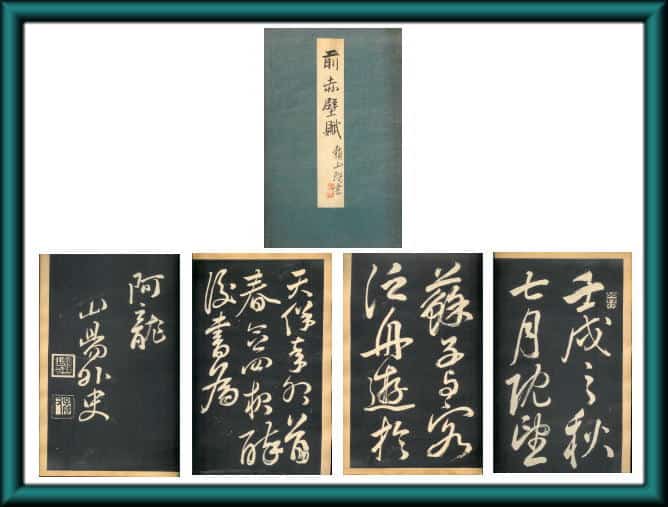 前赤壁賦
頼山陽書
壬戌之秋
七月既望
蘇子与客
泛舟遊於
天保辛卯首
春念四 酔
後書為
阿龍
山陽外史